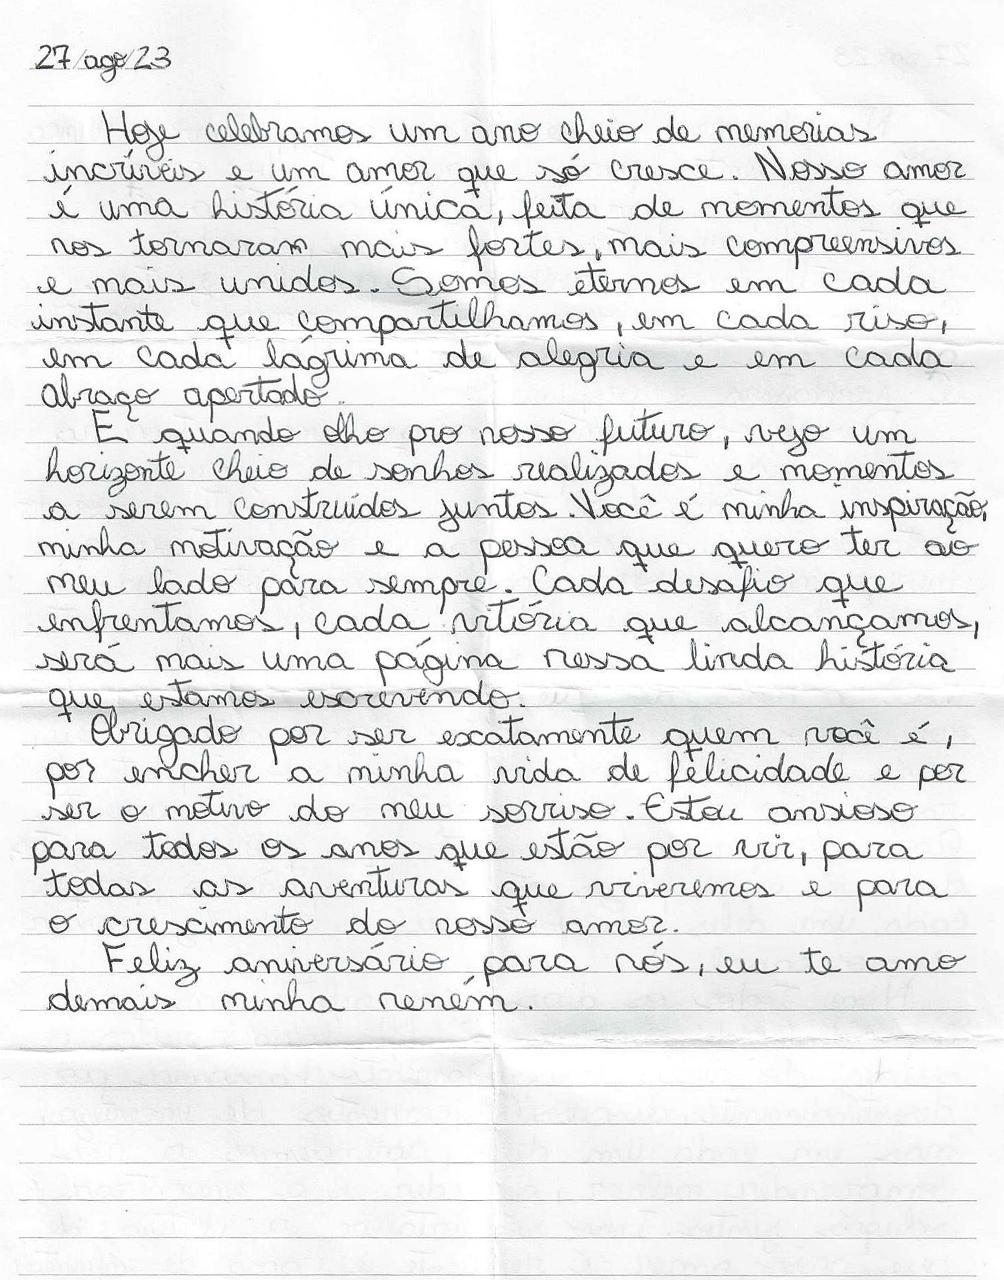 27/ago/23
Hoje celebramos um ano cheio de memorias
incríveis e um amor que só cresce. Nosso amor
é uma história única, feita de momentos que
nos tornaram mais fortes, mais compreensivos
e mais unidos. Somos eternos em cada
instante que compartilhamos, em cada riso,
em cada lágrima de alegria e em cada
abraço apertado.
E quando olho pro nosso futuro, vejo um
horizonte cheio de sonhos realizados e momentos
a serem construídos juntos. Você é minha inspiração,
minha motivação e a pessoa que quero ter ao
meu lado para sempre. Cada desafio que
enfrentamos, cada vitória que alcançamos,
será mais uma página nessa linda história
que estamos escrevendo.
Obrigado por ser exatamente quem você é,
por encher a minha vida de felicidade e por
ser o motivo do meu sorriso. Estou ansioso
para todos os anos que estão por vir, para
todas as aventuras que viveremos e para
o crescimento do nosso amor.
Feliz aniversário para nós, eu te amo
demais minha neném.